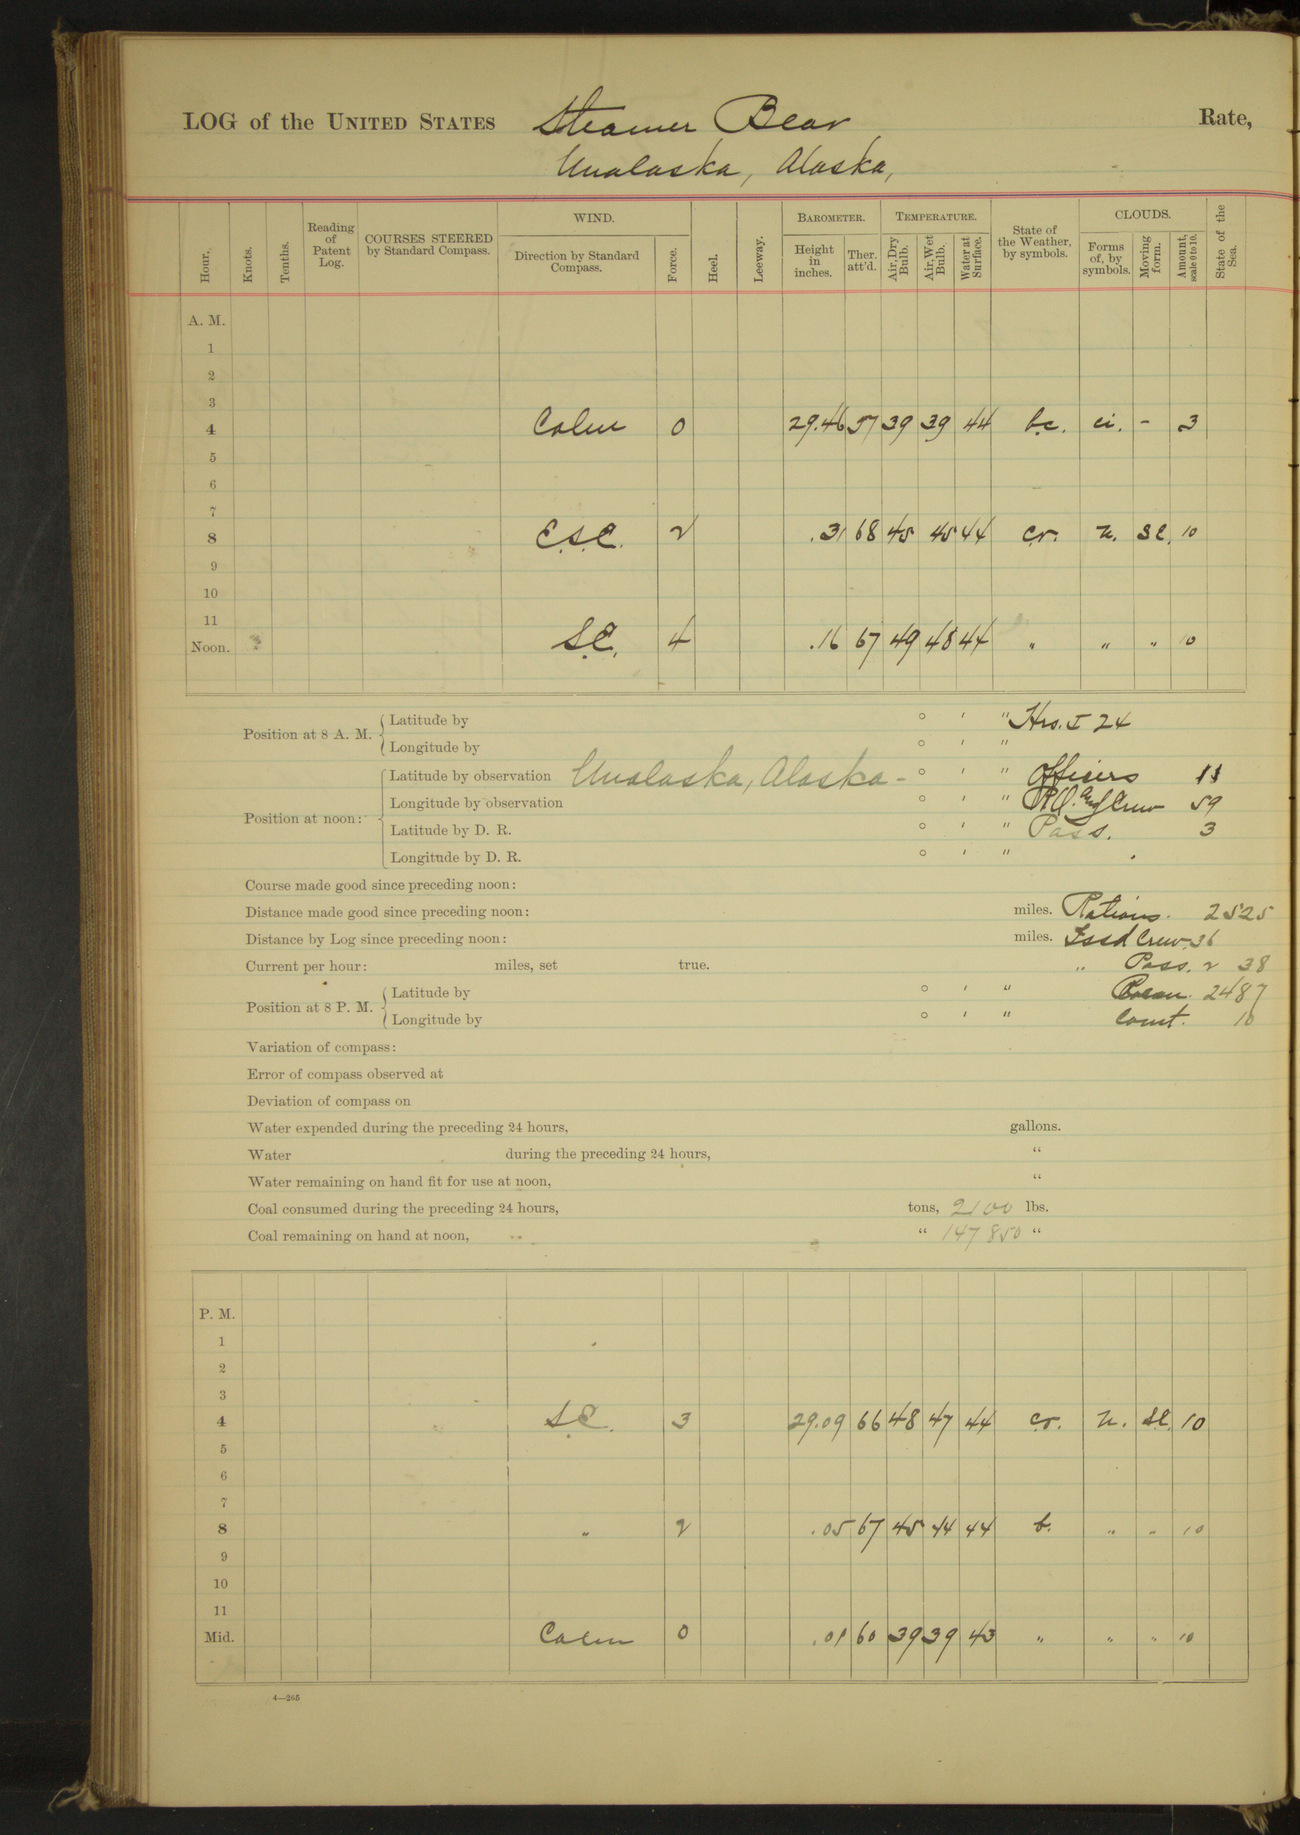 LOG of the UNITED STATES Steamer Bear Rate,
Unalaska, Alaska,
Hour, Knots. Tenths. Reading of Patent Log. COURSES STEERED by Standard Compass. WIND. Direction by Standard Compass. Force. Heel. Leeway. BAROMETER. Height in inches. Ther. att'd. TEMPERATURE. Air, Dry Bulb. Air, Wet Bulb. Water at Surface. State of the Weather, by symbols. CLOUDS. Forms of, by symbols. Moving form. Amount, scale 0 to 10. State of the Sea.
A. M.
1
2
3
4 Calm 0 29.46 57 39 39 44 b.c. ci. - 3
5
6
7
8 E.S.E. 2 .31 68 45 45 44 c.r. n. SE. 10
9
10
11
Noon. S.E. 4 .16 67 49 48 44 " " " 10
Position at 8 A. M. Latitude by ° ' " Hrs. I 24
Longitude by ° ' "
Position at noon: Latitude by observation Unalaska, Alaska - ° ' " Officers 11
Longitude by observation ° ' " P.O. and Crew 59
Latitude by D. R. ° ' " Pass. 3
Longitude by D. R. ° ' "
Course made good since preceding noon:
Distance made good since preceding noon: miles. Rations. 2525
Distance by Log since preceding noon: miles. Issd Crew. 36
Current per hour: miles, set true. " Pass. 2 38
Position at 8 P. M. Latitude by ° ' " 2487
Longitude by ° ' " Comt. 10
Variation of compass:
Error of compass observed at
Deviation of compass on
Water expended during the preceding 24 hours, gallons.
Water during the preceding 24 hours, "
Water remaining on hand fit for use at noon, "
Coal consumed during the preceding 24 hours, tons, 2100 lbs.
Coal remaining on hand at noon, " 147850 "
P. M.
1
2
3
4 S.E. 3 29.09 66 48 47 44 c.r. n. S.E. 10
5
6
7
8 " 2 .05 67 45 44 44 b. " " 10
9
10
11
Mid. Calm 0 .01 60 39 39 43 " " " 10
4—265